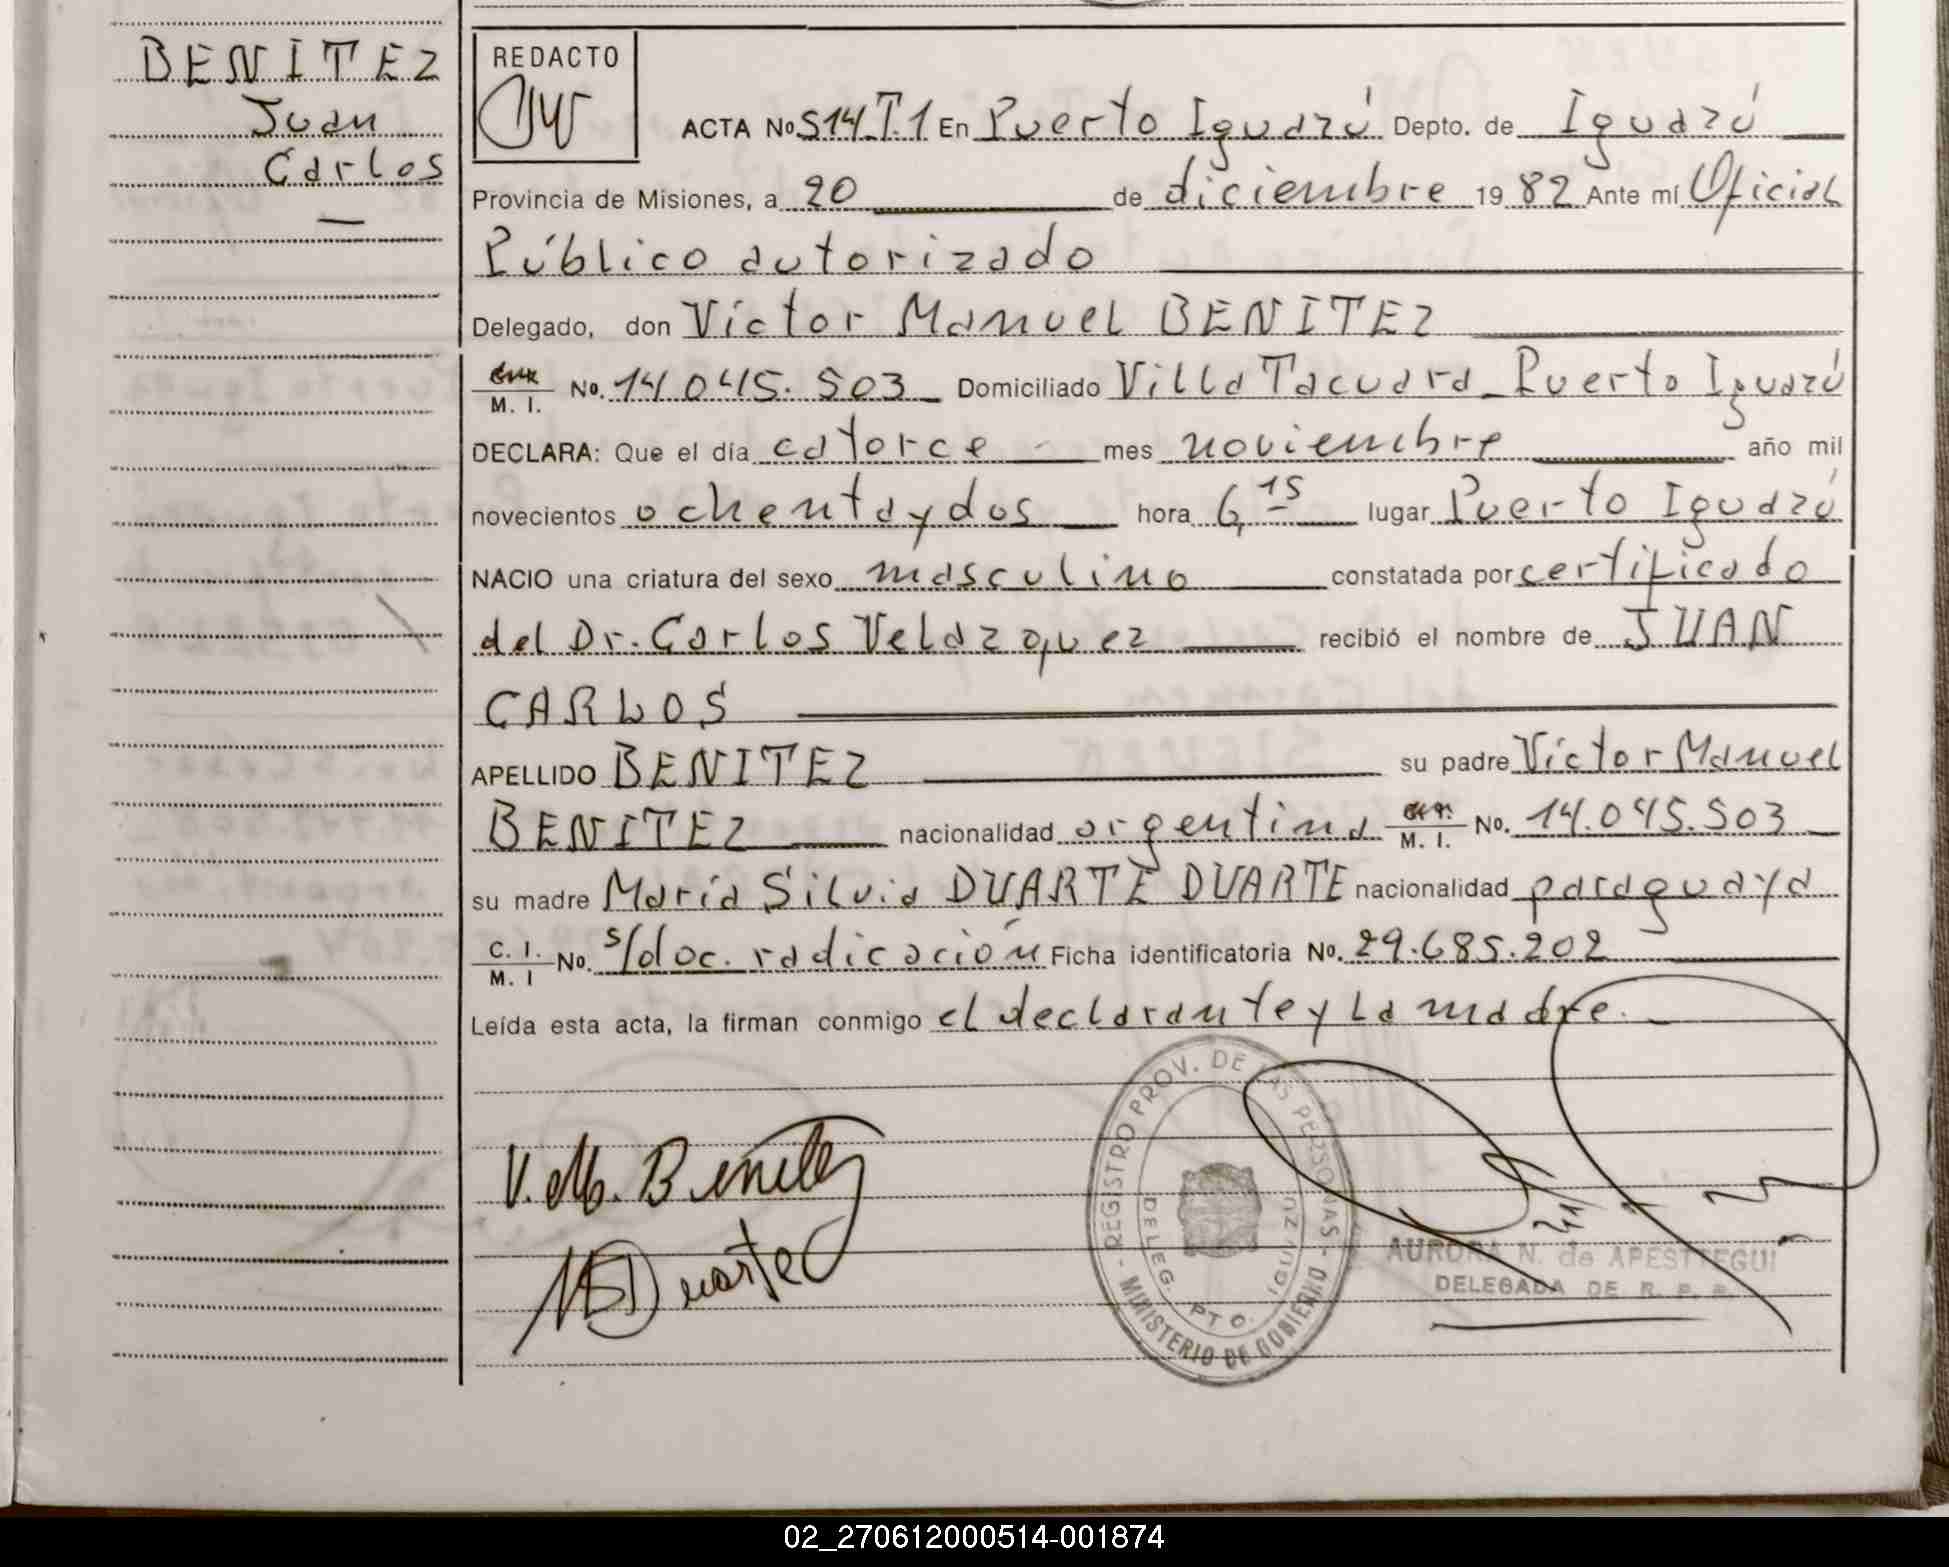 BENITEZ
Juan
Carlos
—
REDACTO
ACTA No S14 T.1 En Puerto Iguazú Depto. de Iguazú
Provincia de Misiones, a 20 de diciembre 19 82 Ante mí Oficial
Público autorizado
Delegado, don Víctor Manuel BENITEZ
M. I. No. 14.045.503 Domiciliado Villa Tacuara - Puerto Iguazú
DECLARA: Que el día catorce mes noviembre año mil
novecientos ochenta y dos hora 6,15 lugar Puerto Iguazú
NACIO una criatura del sexo masculino constatada por certificado
del Dr. Carlos Velazquez recibió el nombre de JUAN
CARLOS
APELLIDO BENITEZ su padre Víctor Manuel
BENITEZ nacionalidad argentina M. I. No. 14.045.503
su madre María Silvia DUARTE DUARTE nacionalidad paraguaya
C. I. M. I No. s/doc. radicación Ficha identificatoria No. 29.685.202
Leída esta acta, la firman conmigo el declarante y la madre.
V. M. Benitez
MSDuarte
REGISTRO PROV. DE LAS PERSONAS - MINISTERIO DE GOBIERNO -
DELEG. PTO. IGUAZU
AURORA N. de APESTEGUI
DELEGADA DE R. P. P.
02_270612000514-001874